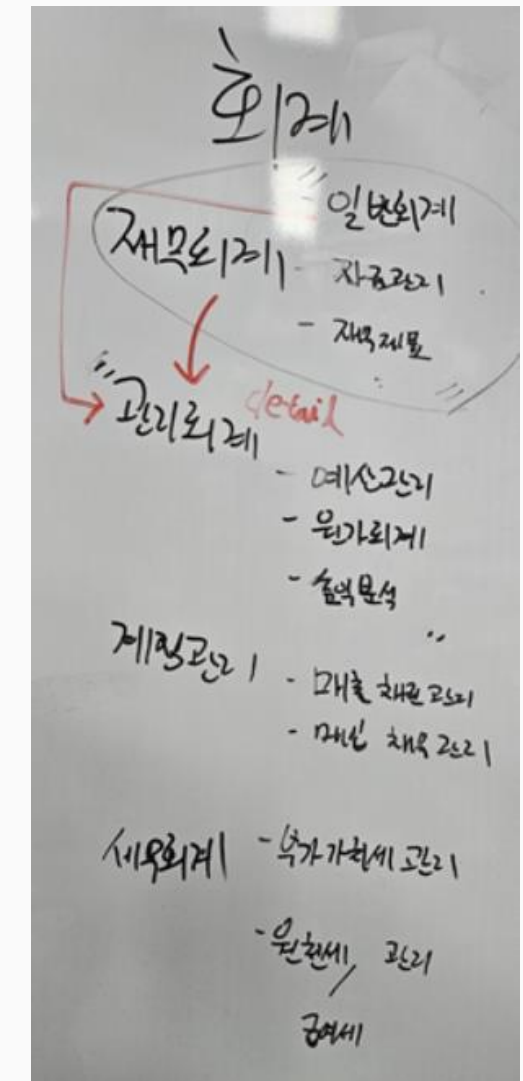 회계
재무회계 - 일반회계
- 자금관리
- 재무제표
관리회계 detail
- 예산관리
- 원가회계
- 손익분석
계획관리 - 매출 채권 관리
- 매입 채무 관리
세무회계 - 부가가치세 관리
- 원천세 관리
급여세